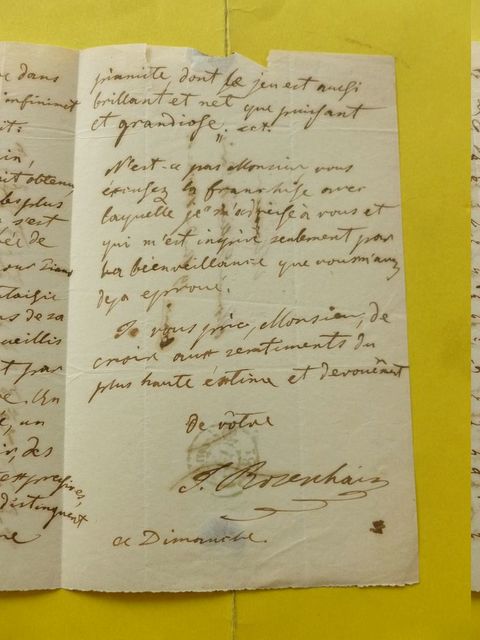 e dans
infiniment
it:
in,
it obtenu
les plus
s'est
ée de
pour Piano
ntaisie
ns de sa
ueillis
t par
e. En
é, un
ir, des
expressives,
distinguent
ne
pianiste, dont le jeu est aussi
brillant et net que puissant
et grandiose". ect.
N'est-ce pas Monsieur vous
excusez la franchise avec
laquelle je m'adresse à vous et
qui m'est inspiré seulement par
la bienveillance que vous m'avez
deja eprouvé.
Je vous prie, Monsieur, de
croir aux sentiments du
plus haute éstime et devouêment
de vôtre
J. Rosenhain
ce Dimanche.